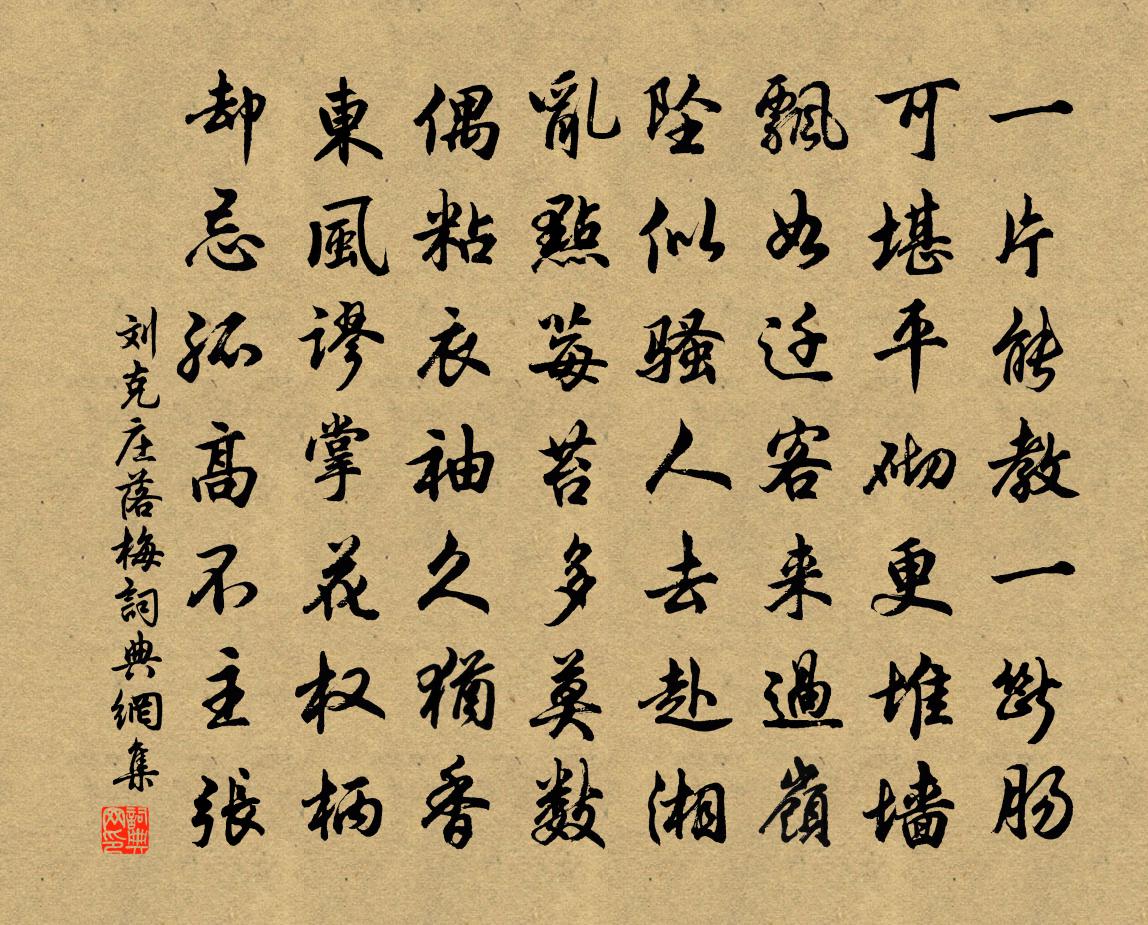 一片能教一斷肠
可堪平砌更堆墙
飄如迁客来過嶺
坠似骚人去赴湘
亂點莓苔多莫數
偶粘衣袖久猶香
東風謬掌花权柄
却忌孤高不主張
刘克庄落梅詞典網集
詞典网印